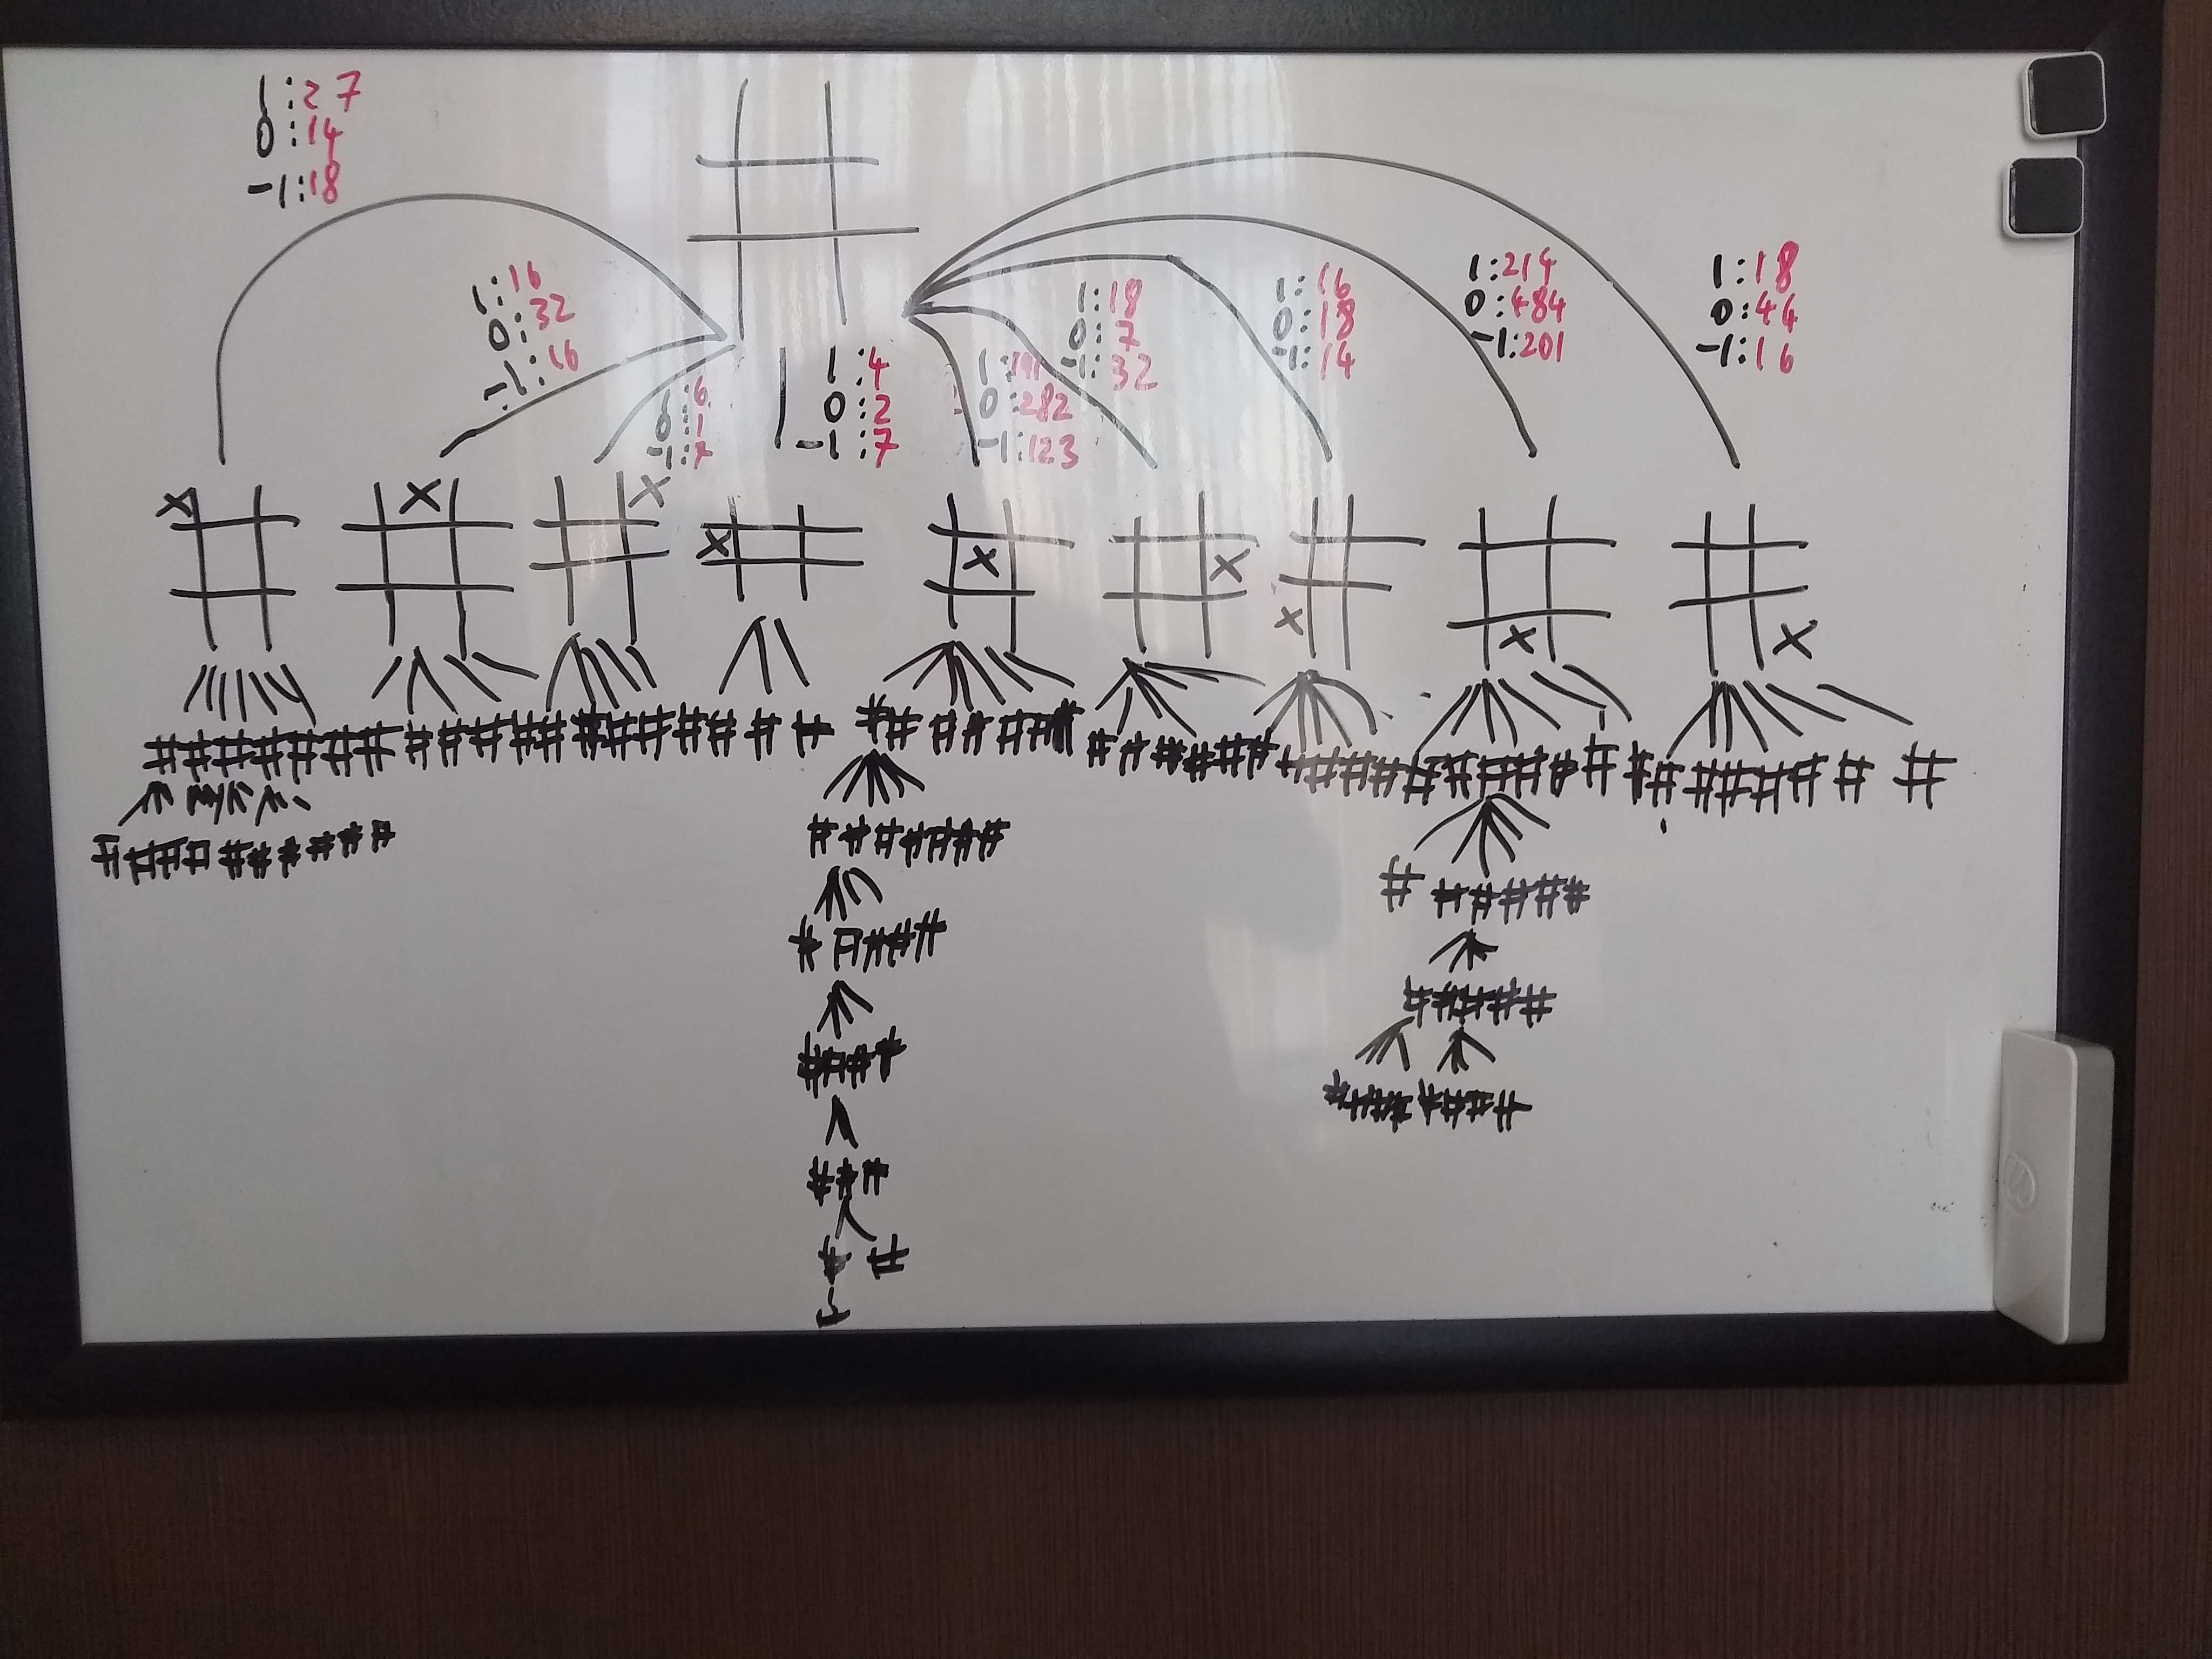 1:27
0:14
-1:18
1:16
0:32
-1:16
1:6
0:1
-1:7
1:4
0:2
-1:7
1:191
0:282
-1:123
1:18
0:7
-1:32
1:16
0:18
-1:14
1:214
0:484
-1:201
1:18
0:44
-1:16
X
X
X
X
X
X
X
X
X